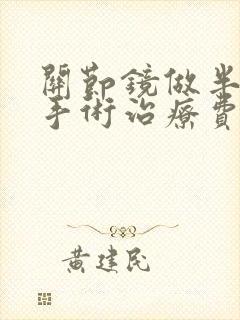 關節鏡做半
手術治療費
黃建民